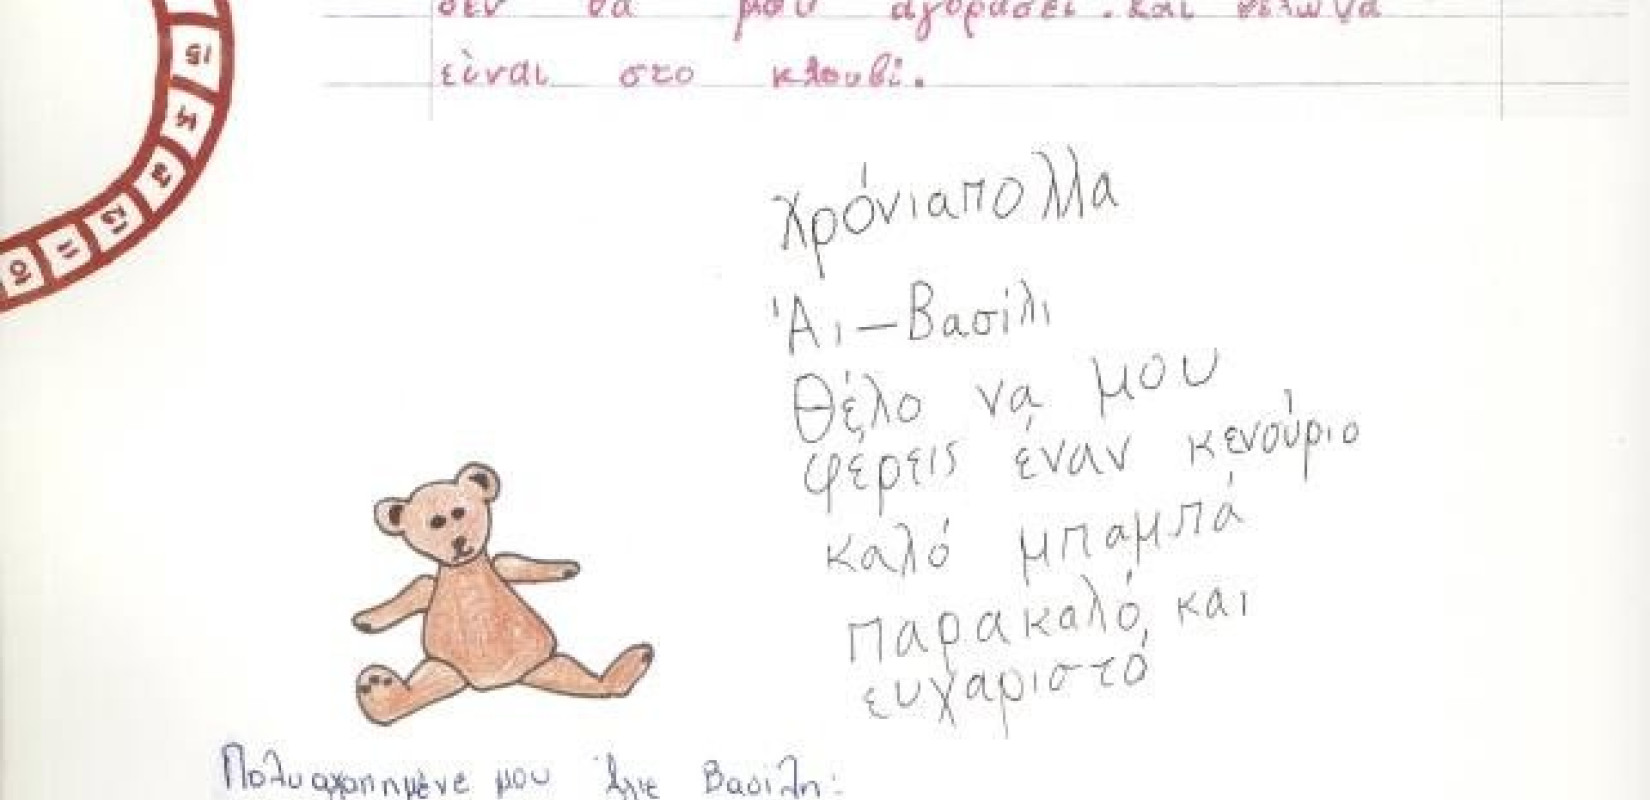 δεν θα μου αγοράσει. και θέλω να
είναι στο κλουβί.
15
14
13
12
11
10
Χρόνιαπολλα
'Αι-Βασίλι
Θέλο να μου
φέρεις έναν κενούριο
καλό μπαμπά
παρακαλό και
ευχαριστό
Πολυαγαπημένε μου Άγιε Βασίλη: